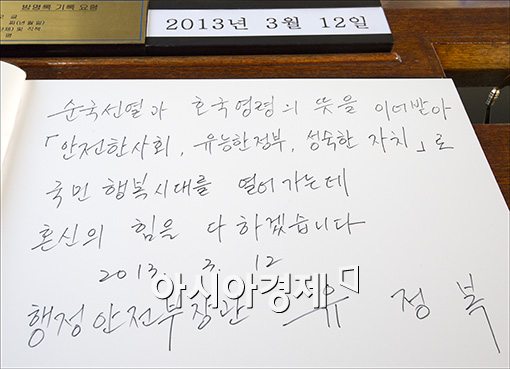 방명록 기록 요령
2013년 3월 12일
순국선열과 호국영령의 뜻을 이어받아
「안전한사회, 유능한정부, 성숙한 자치」로
국민 행복시대를 열어 가는데
혼신의 힘을 다 하겠습니다
2013. 3. 12
아시아경제
행정안전부장관 유 정 복